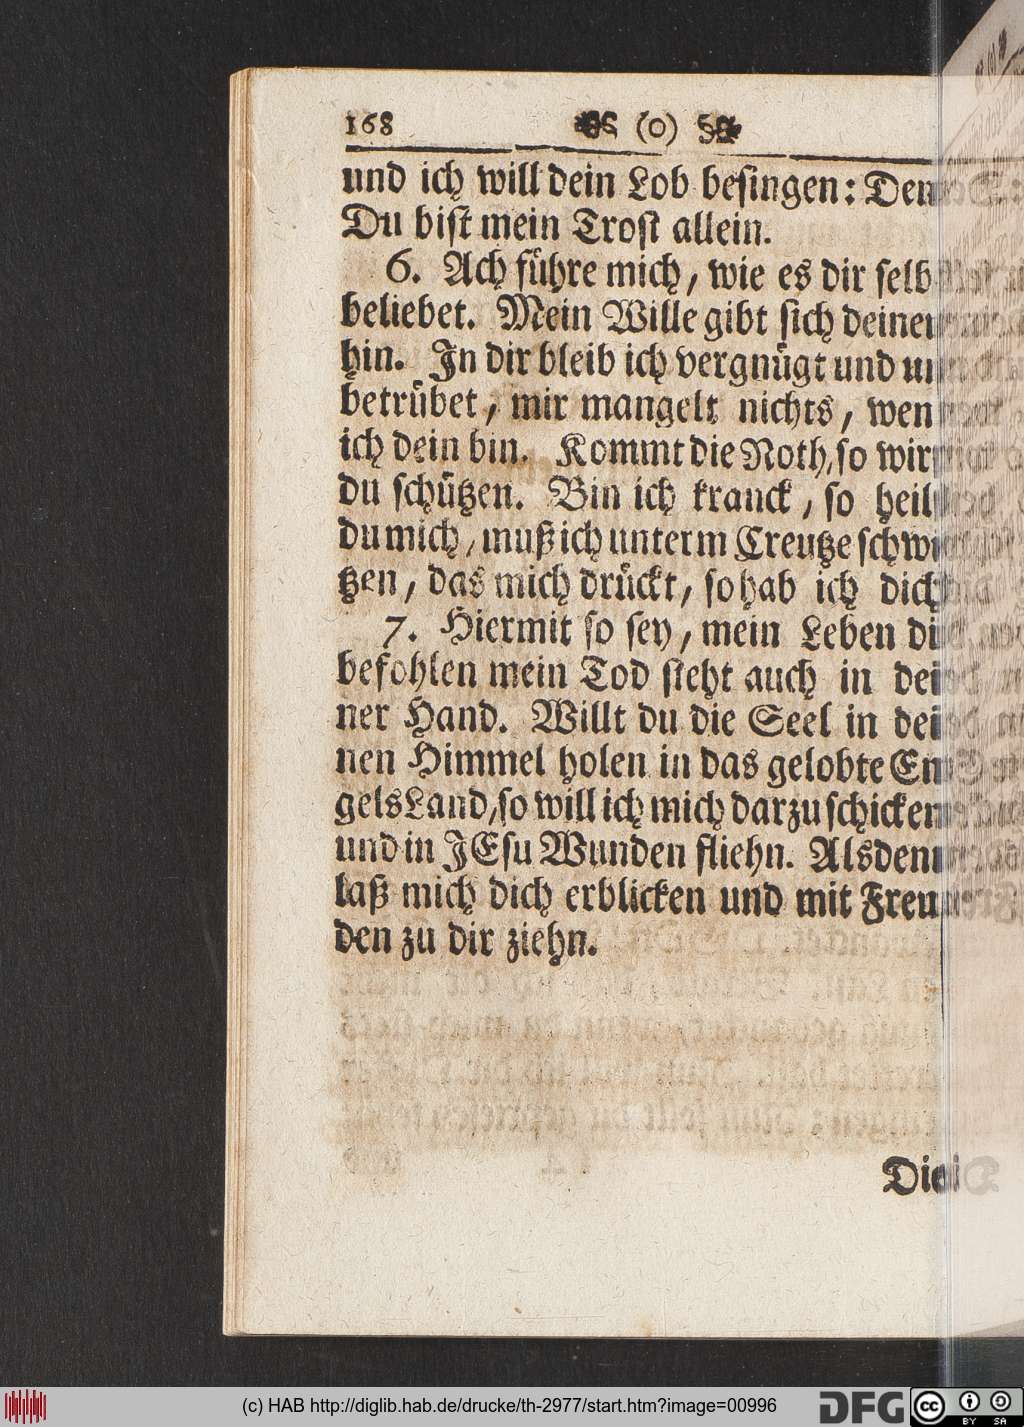 168 (o)
und ich will dein Lob besingen: Den
Du bist mein Trost allein.
6. Ach führe mich, wie es dir selb
beliebet. Mein Wille gibt sich deinen
hin. In dir bleib ich vergnügt und un
betrübet, mir mangelt nichts, wen
ich dein bin. Kommt die Noth, so wir
du schützen. Bin ich kranck, so heil
du mich, muß ich unterm Creutze schwi
tzen, das mich drückt, so hab ich dich
7. Hiermit so sey, mein Leben di
befohlen mein Tod steht auch in dei
ner Hand. Willt du die Seel in dei
nen Himmel holen in das gelobte En
gels Land, so will ich mich darzu schicken
und in JEsu Wunden fliehn. Alsdenn
laß mich dich erblicken und mit Freu
den zu dir ziehn.
Die
(c) HAB http://diglib.hab.de/drucke/th-2977/start.htm?image=00996
DFG
cc BY SA